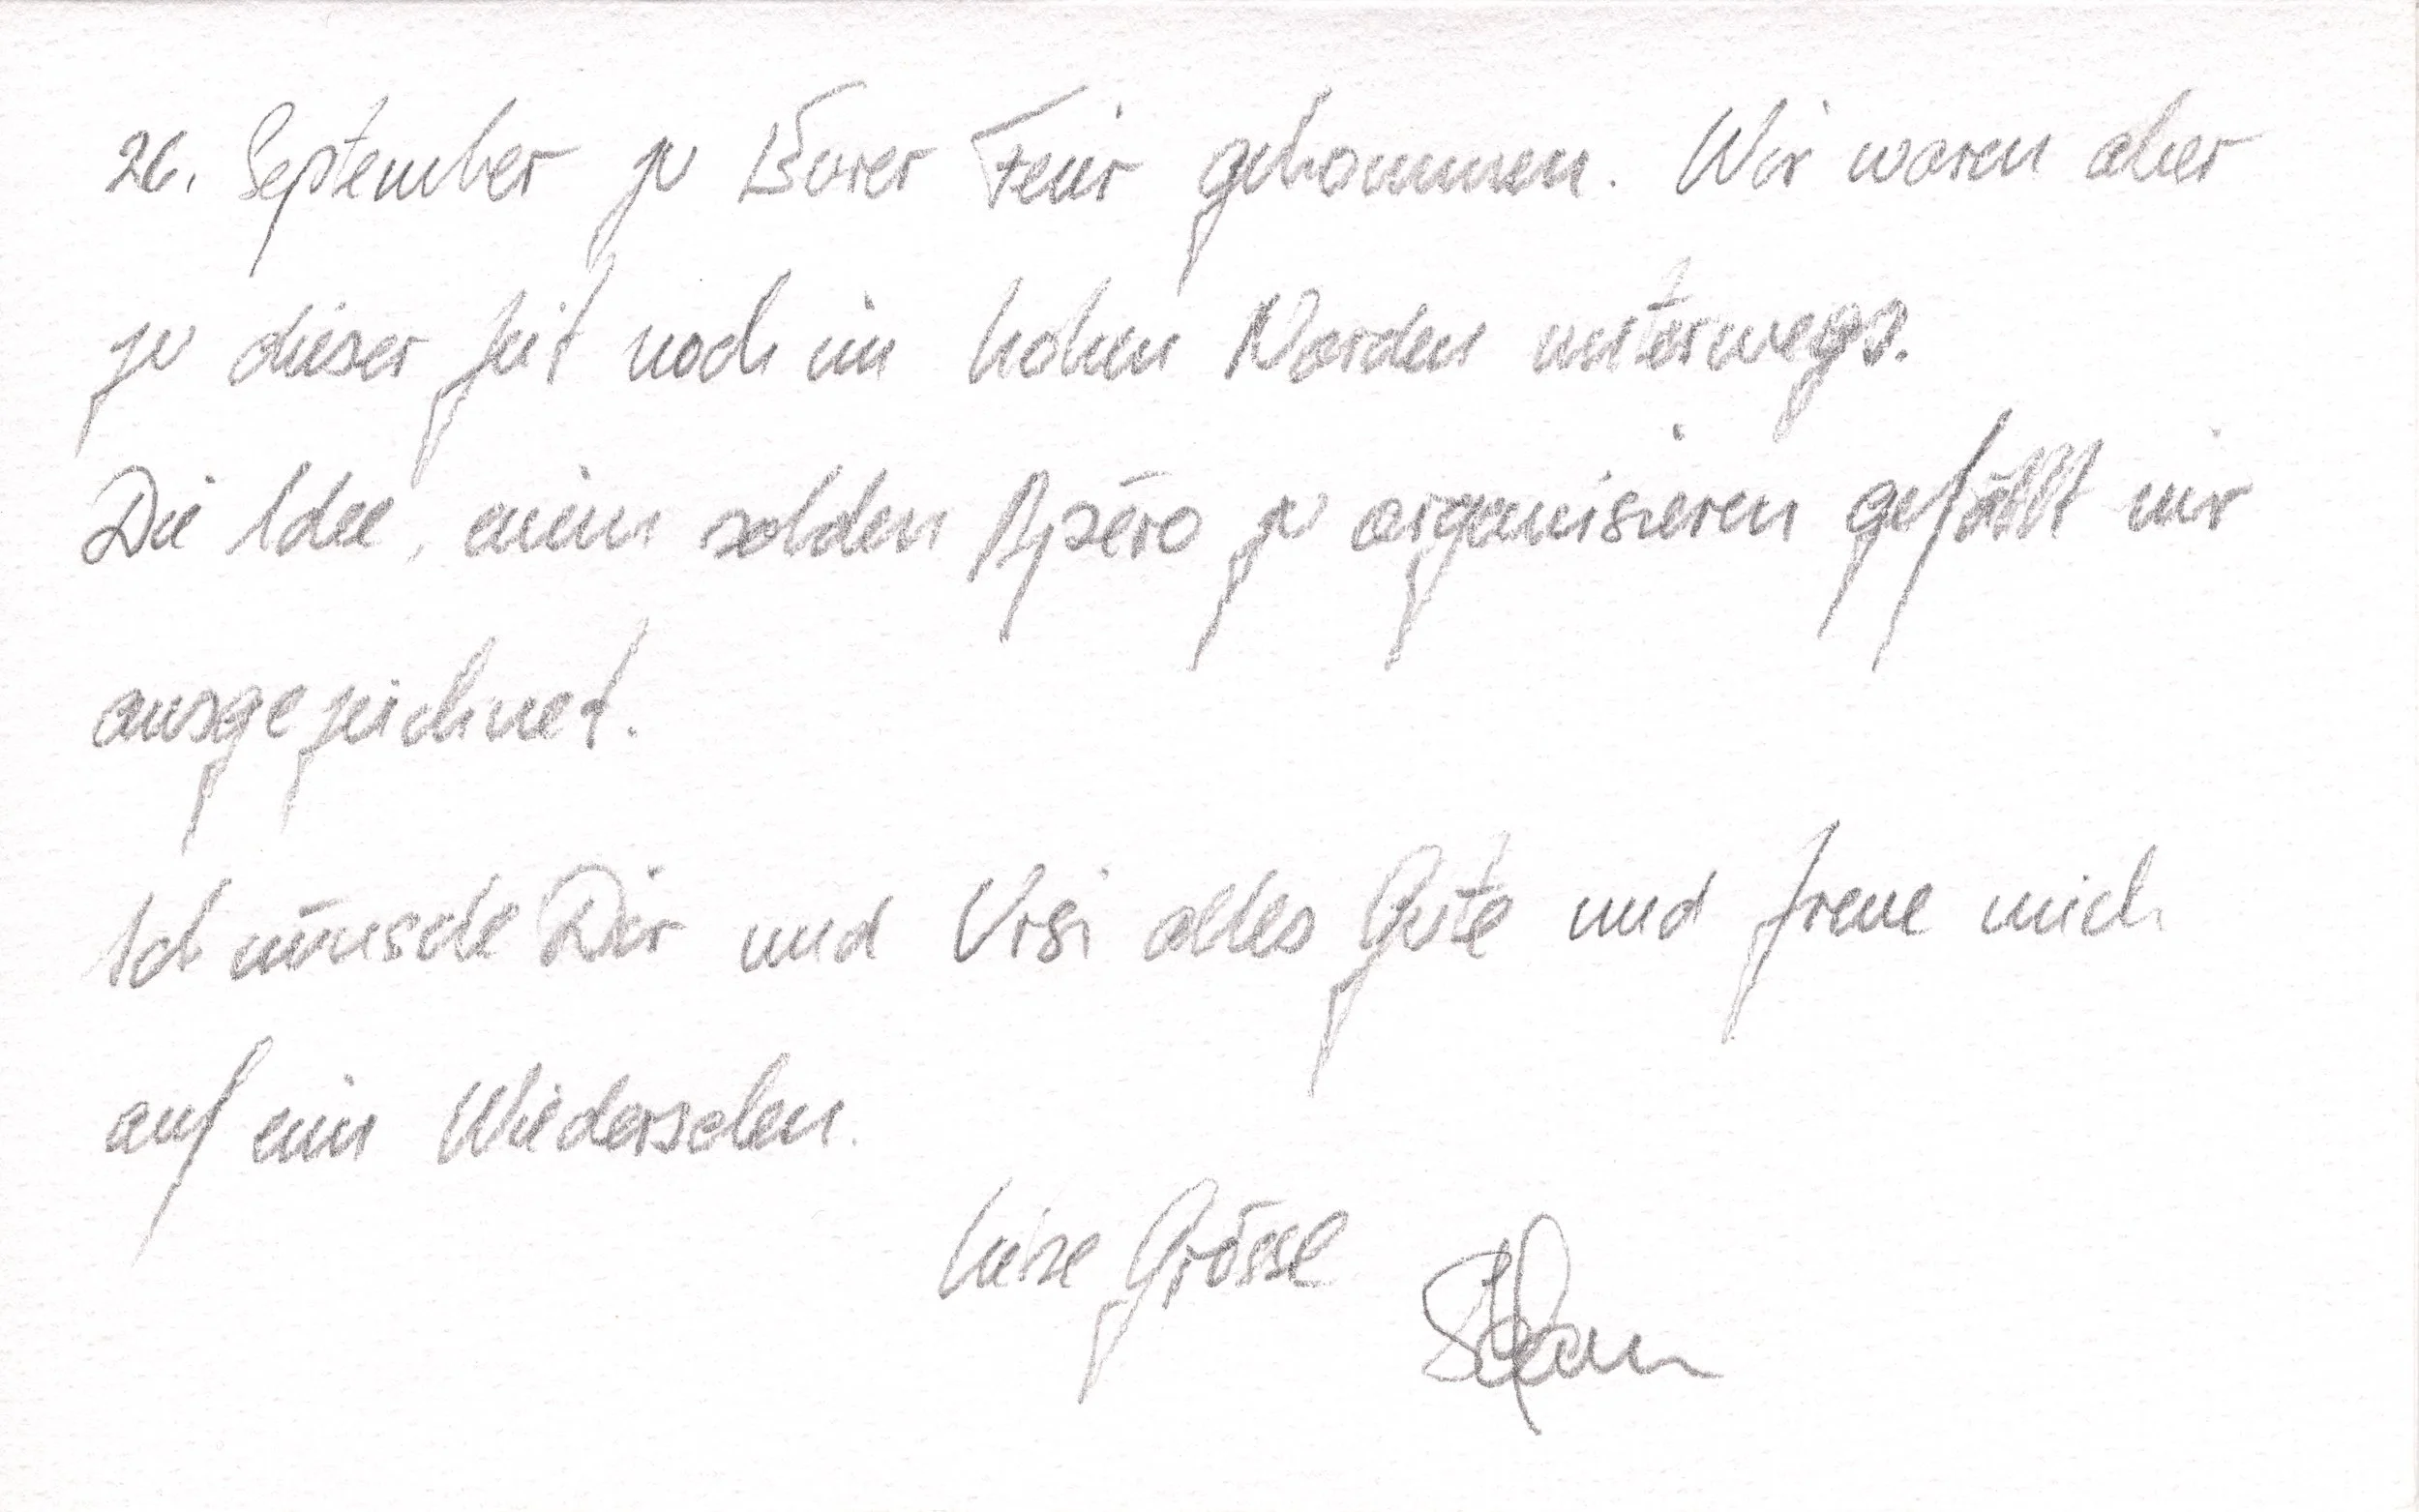 26. September zu Eurer Feier gekommen. Wir waren aber
zu dieser Zeit noch im hohen Norden unterwegs.
Die Idee, einen solchen Apéro zu organisieren gefällt mir
ausgezeichnet.
Ich wünsche Dir und Ursi alles Gute und freue mich
auf ein Wiedersehen.
Liebe Grüsse Stefan